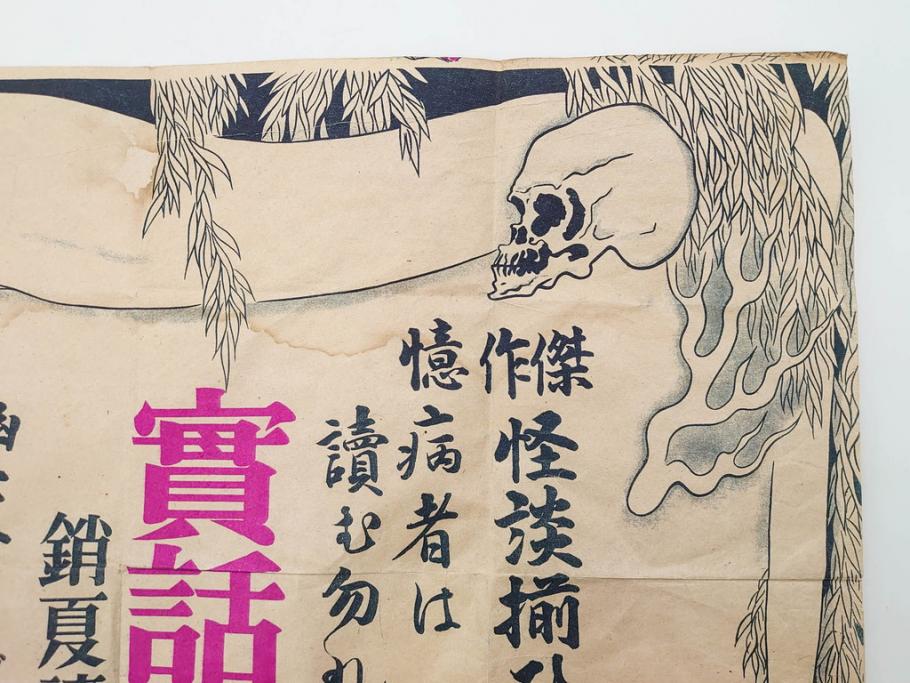 傑作怪談揃ひ
憶病者は
讀む勿れ
實話
銷夏